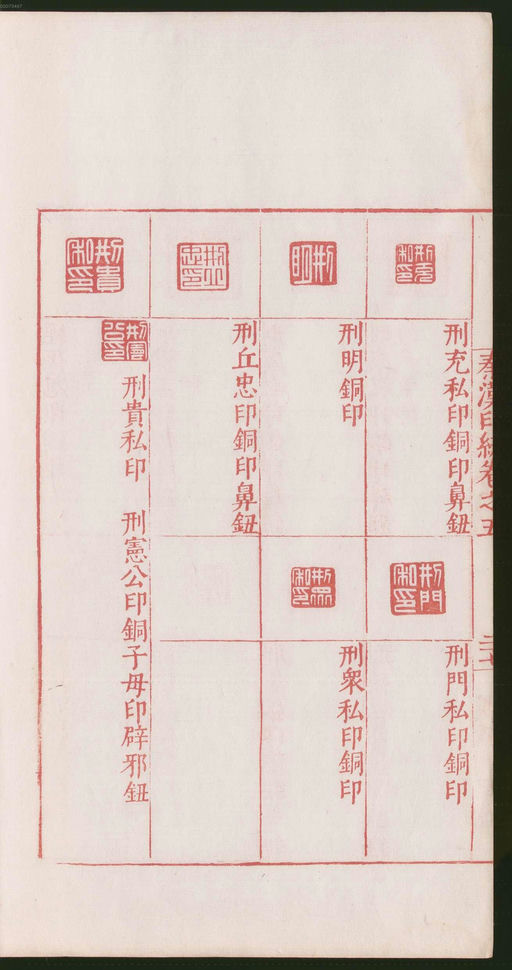 秦漢印統卷之五
刑充私印銅印鼻鈕
刑門私印銅印
刑明銅印
刑衆私印銅印
刑丘忠印銅印鼻鈕
刑貴私印 刑憲公印銅子母印辟邪鈕